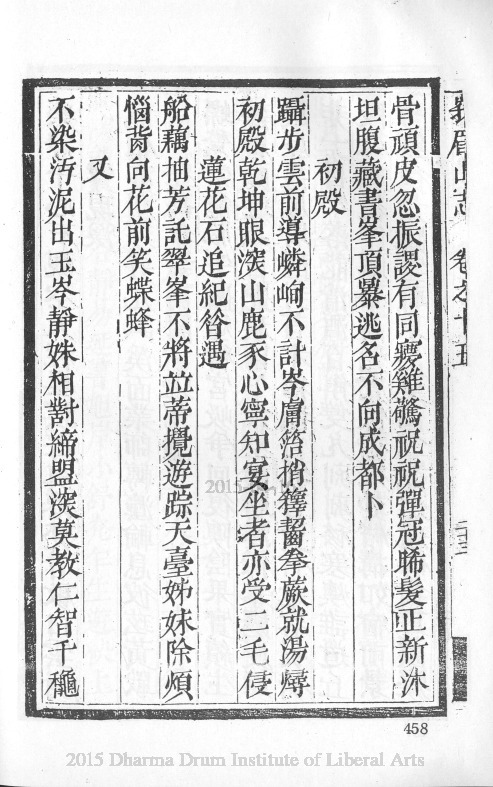 峩眉山志 卷之十五 二十三
骨頑皮忽振謖有同癭雞驚祝祝彈冠晞髮正新沐
坦腹藏書峯頂曝逃名不向成都卜
初殿
躡步雲前導嶙峋不計岑膚箬捎籜齧拳蕨就湯燖
初殿乾坤眼深山鹿豕心寧知宴坐者亦受二毛侵
蓮花石追紀昝遇
船藕抽芳託翠峯不將竝蒂攪遊踪天臺姊妹除煩
惱背向花前笑蝶蜂
又
不染汚泥出玉岑靜姝相對締盟深莫教仁智千龝
458
2015
2015 Dharma Drum Institute of Liberal Arts